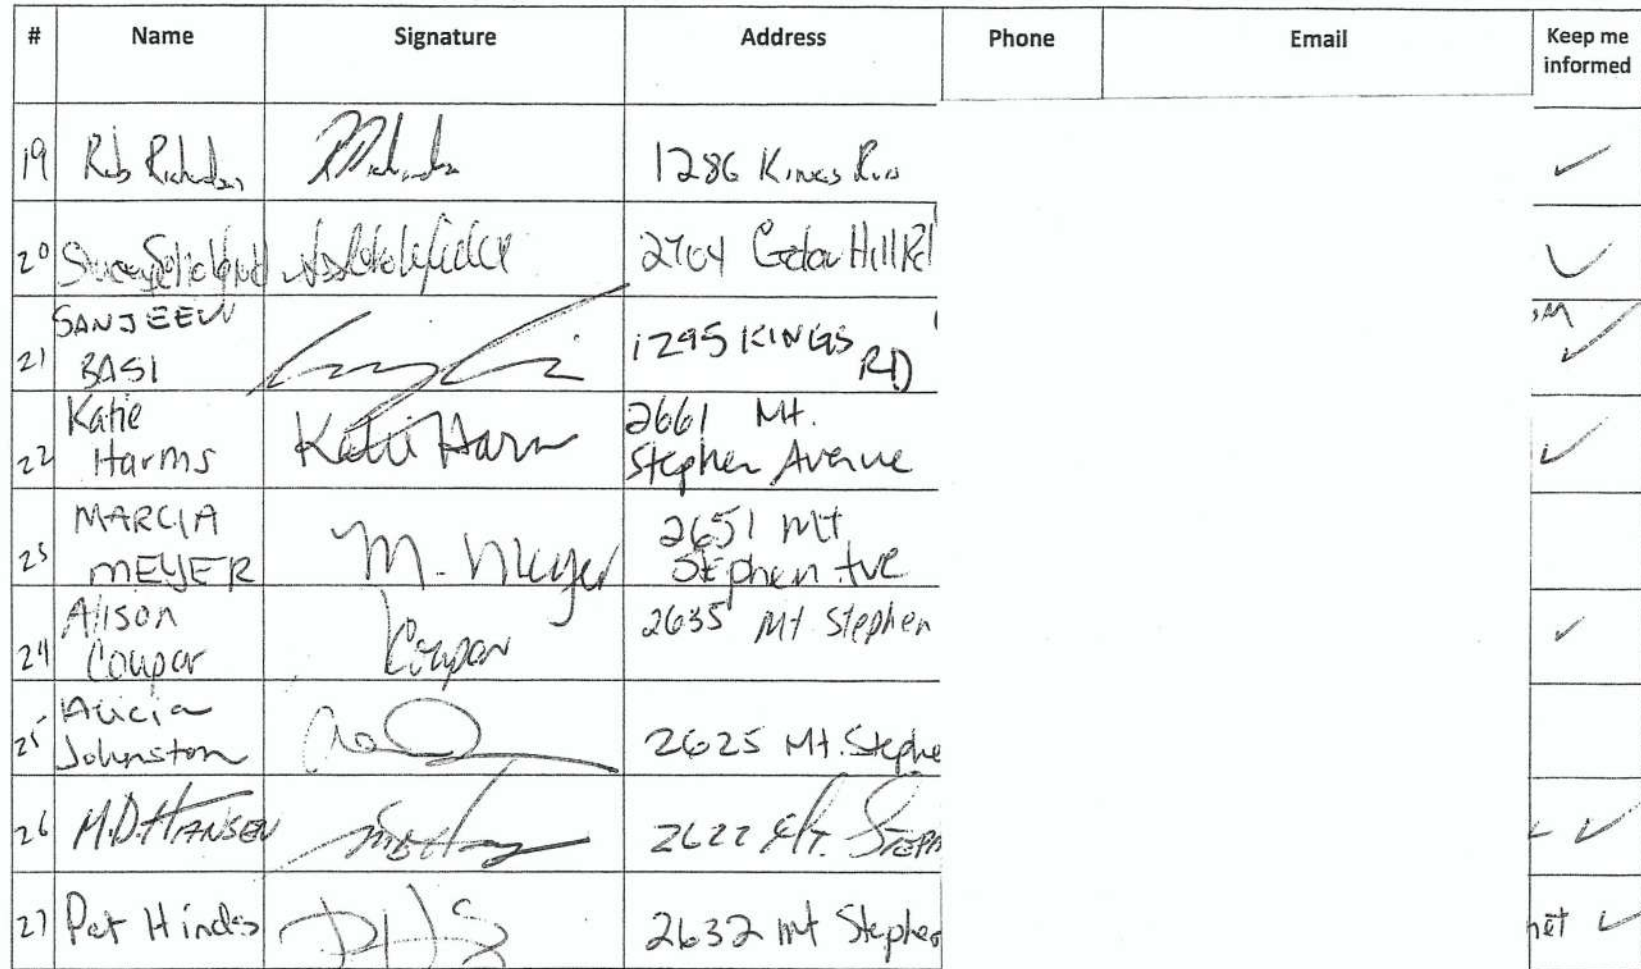 # Name Signature Address Phone Email Keep me informed
19 Rob Richardson 1286 Kings Rd
20 2704 Cedar Hill Rd
21 SANJEEV BASI 1295 KINGS RD
22 Katie Harms Katie Harm 2661 Mt. Stephen Avenue
23 MARCIA MEYER M. Meyer 2651 Mt Stephen Ave
24 Alison Coupar Coupar 2635 Mt Stephen
25 Alicia Johnston 2625 Mt. Stephe
26 M.D. HANSEN 2622 Mt. STEPH
27 Pat Hinds 2632 Mt Stephen net